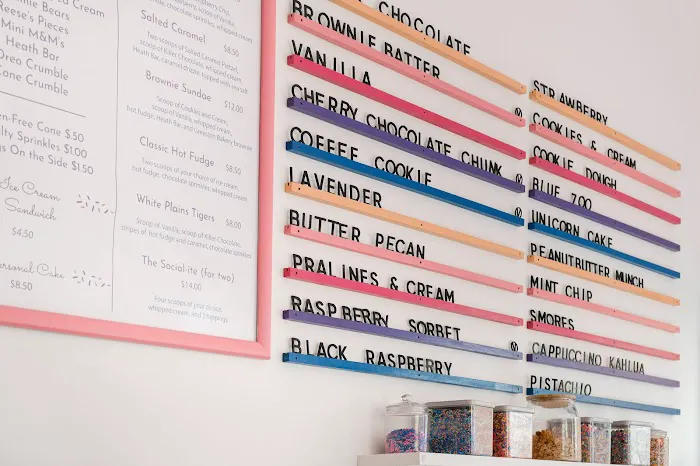 Reese's Pieces
Mini M&M's
Heath Bar
Oreo Crumble
Cone Crumble
$.50
Sprinkles $1.00
on the Side $1.50
Ice Cream
Sandwich
$4.50
Personal Cake
$8.50
chocolate sprinkles, whipped cream
Salted Caramel $8.50
Two scoops of Salted Caramel Pretzel,
scoop of Killer Chocolate, whipped cream,
Heath Bar, caramel drizzle, topped with sea salt
Brownie Sundae $12.00
Scoop of Cookies and Cream,
scoop of Vanilla, whipped cream,
hot fudge, Heath Bar, and Greyston Bakery brownie
Classic Hot Fudge $8.50
Two scoops of your choice of ice cream,
hot fudge, chocolate sprinkles, whipped cream
White Plains Tigers $8.00
Scoop of Vanilla, scoop of Killer Chocolate,
stripes of hot fudge and caramel, chocolate sprinkles
The Social-ite (for two)
$14.00
Four scoops of your choice,
whipped cream, and 2 toppings
CHOCOLATE
BROWNIE BATTER
VANILLA
CHERRY CHOCOLATE CHUNK
COFFEE COOKIE
LAVENDER
BUTTER PECAN
PRALINES & CREAM
RASPBERRY SORBET
BLACK RASPBERRY
STRAWBERRY
COOKIES & CREAM
COOKIE DOUGH
BLUE ZOO
UNICORN CAKE
PEANUTBUTTER MUNCH
MINT CHIP
SMORES
CAPPUCCINO KAHLUA
PISTACHIO